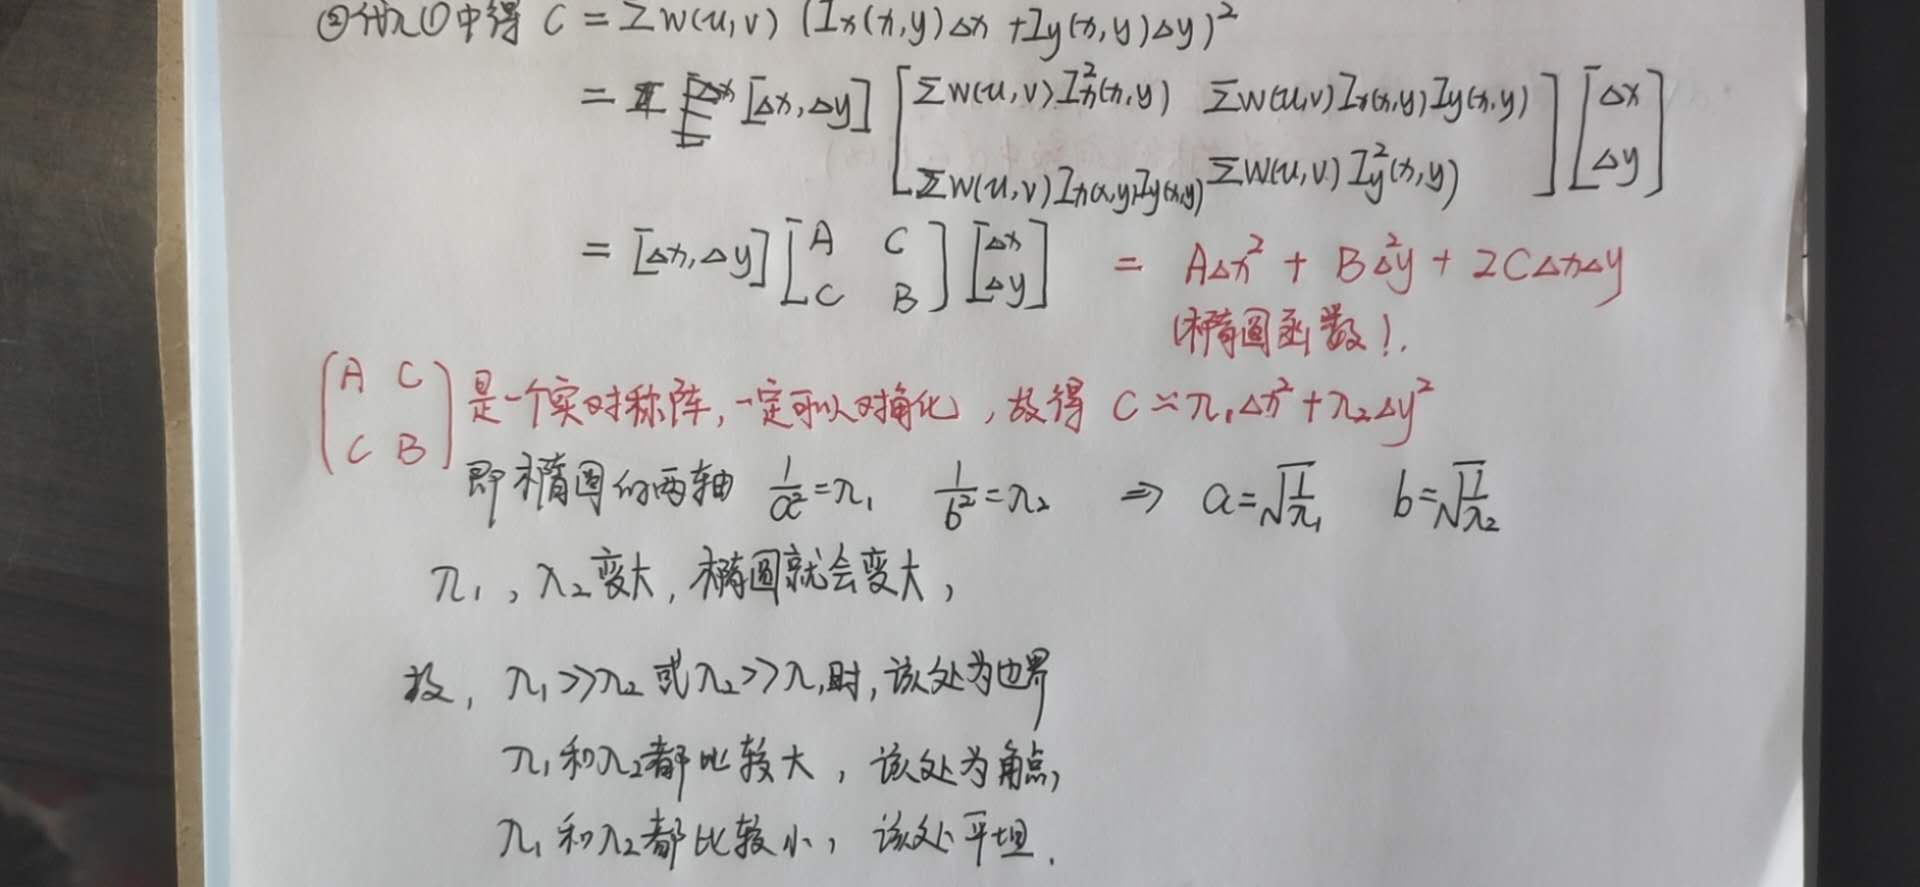 ②代入①中得 C = Σw(u,v) (Ix(x,y)Δx + Iy(x,y)Δy)²
= [Δx,Δy] [Σw(u,v)Ix²(x,y) Σw(u,v)Ix(x,y)Iy(x,y)] [Δx
[Σw(u,v)Ix(x,y)Iy(x,y) Σw(u,v)Iy²(x,y)] Δy]
= [Δx,Δy] [A C
C B] [Δx
Δy] = AΔx² + BΔ²y + 2CΔxΔy
(椭圆函数).
(A C
C B) 是一个实对称阵,一定可以对角化,故得 C ≈ λ₁Δx² + λ₂Δy²
即椭圆的两轴 1/a² = λ₁ 1/b² = λ₂ ⇒ a = √(1/λ₁) b = √(1/λ₂)
λ₁,λ₂变大,椭圆就会变大,
故,λ₁>>λ₂ 或 λ₂>>λ₁时,该处为边界
λ₁和λ₂都比较大,该处为角点,
λ₁和λ₂都比较小,该处平坦.